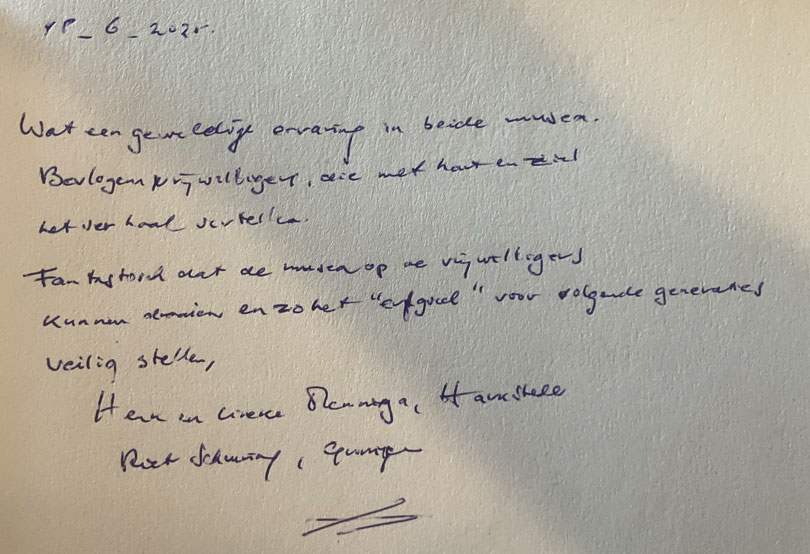 6 - 2025.
Wat een geweldige ervaring in beide musea.
Bevlogen vrijwilligers, die met hart en ziel
het verhaal vertellen.
Fantastisch dat de musea op de vrijwilligers
kunnen en zo het "erfgoed" voor volgende generaties
veilig stellen,
Henk en Lineke
Riet